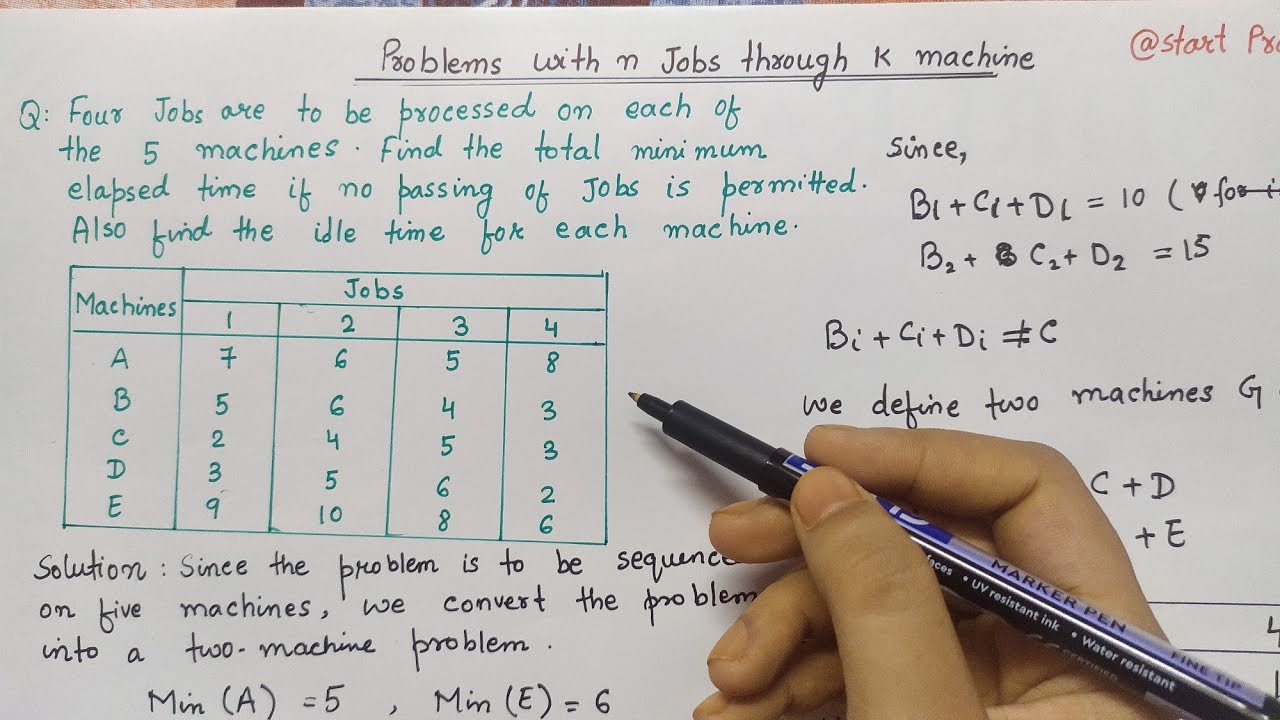 Problems with n Jobs through K machine
@start Pr
Q: Four Jobs are to be processed on each of
the 5 machines. Find the total minimum
elapsed time if no passing of Jobs is permitted.
Also find the idle time for each machine.
Machines Jobs
1 2 3 4
A 7 6 5 8
B 5 6 4 3
C 2 4 5 3
D 3 5 6 2
E 9 10 8 6
Solution: Since the problem is to be sequence
on five machines, we convert the problem
into a two-machine problem.
Min (A) = 5 , Min (E) = 6
Since,
B1 + C1 + D1 = 10 (
B2 + C2 + D2 = 15
Bi + Ci + Di ≠ C
we define two machines G
C + D
+ E
faces • UV resistant ink • Water resistant
MARKER PEN
FINE TIP